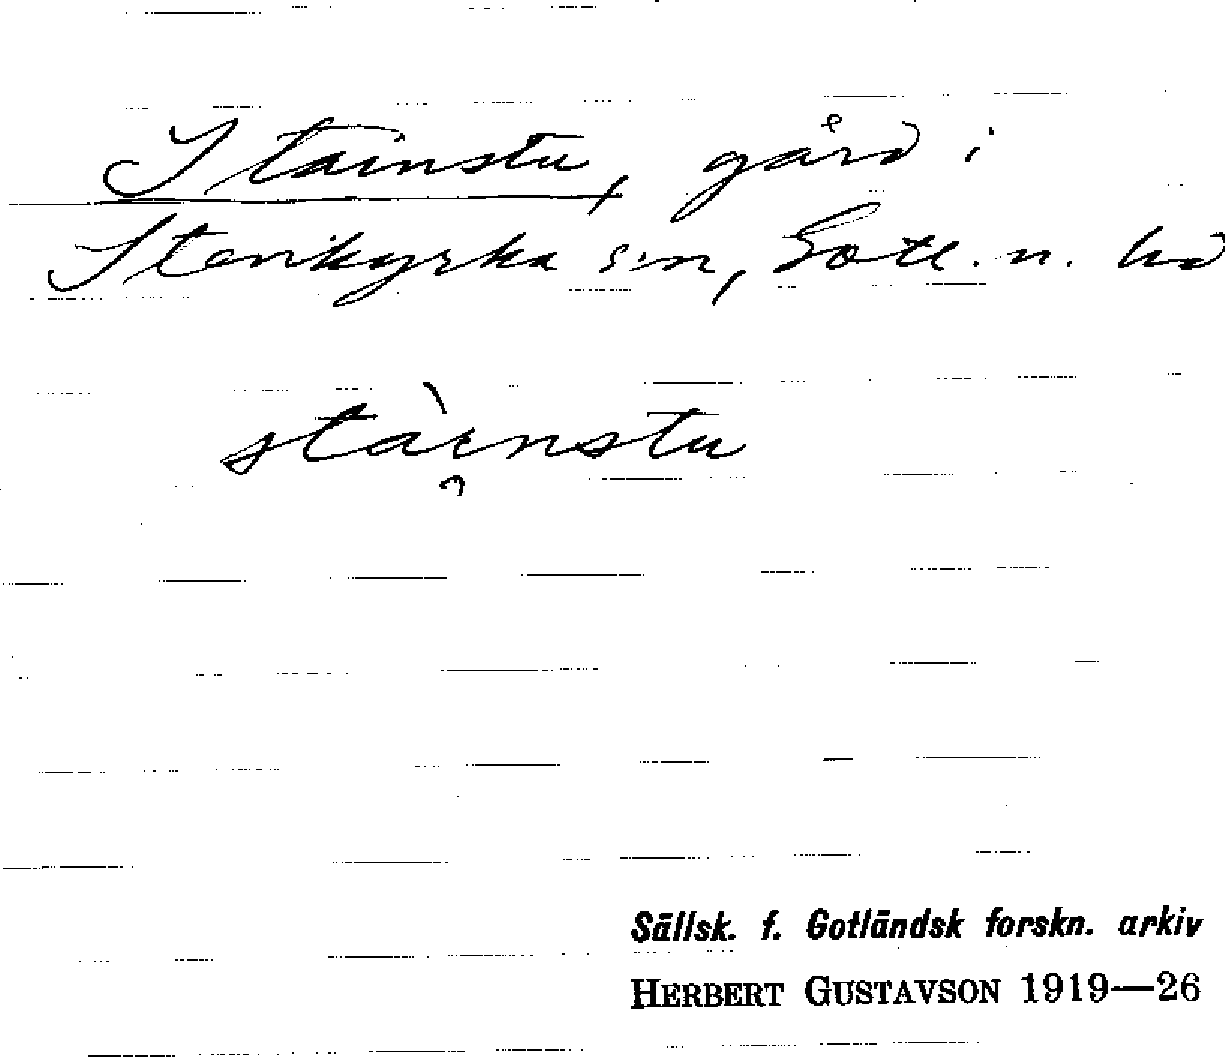 Stainstu, gård i
Stenkyrka s:n, Gotl. n. hd
stàinstu
Sällsk. f. Gotländsk forskn. arkiv
HERBERT GUSTAVSON 1919—26